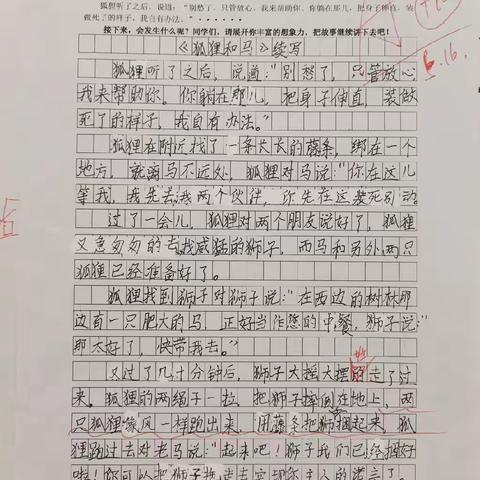 狐狸听了之后,说道:"别愁了,只管放心,我来帮助你。你躺在那儿,把身子伸直,装
做死了的样子,我自有办法。"
接下来,会发生什么呢?同学们,请展开你丰富的想象力,把故事继续讲下去吧!
《狐狸和马》续写
狐狸听了之后,说道:"别愁了,只管放心
我来帮助你。你躺在那儿,把身子伸直,装做
死了的样子,我自有办法。"
狐狸在附近找了一条长长的藤条,绑在一个
地方,就离马不远处,狐狸对马说:"你在这儿
等我,我先去找两个伙伴,你先在这装死别动。
过了一会儿,狐狸对两个朋友说好了,狐狸
又急匆匆的去找威猛的狮子,而马和另外两只
狐狸已经准备好了。
狐狸找到狮子对狮子说:"在西边的树林那
边有一只肥大的马,正好当作您的中餐,狮子说:"
那太好了,快带我去。"
又过了几十分钟后,狮子大摇大摆的走了过
来。狐狸的两绳子一拉,把狮子摔倒在地上,两
只狐狸像风一样跑出来,用藤条把狮捆起来,狐
狸跑过去对老马说:"起来吧!狮子我们已经捆好
啦!你可以把狮子拖走去实现你主人的诺言了。
5.16.